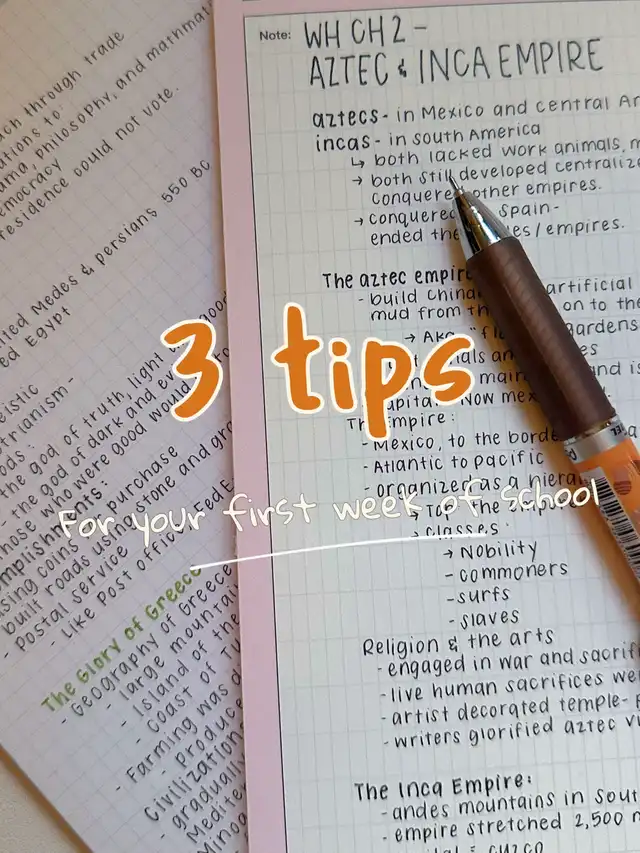 ach through trade
ations to:
ama, philosophy, and mathmat
emocracy
residence could not vote.
ited Medes & persians 550 BC
ed Egypt
eistic
trianism-
ods:
the god of truth, light good
- the god of dark and ev
hose who were good would
mplishments:
sing coins to purchase
built roads using stone and gr
- Postal service
- Like Post office
The Glory of Greece
- Geography of Greece
- large mountai
- Island of the
- Coast of Tu
- Farming was d
- produce
Civilization
- gradually
Mediter
Minoa
Note: WH CH 2 -
AZTEC & INCA EMPIRE
aztecs - in Mexico and central Am
incas - in south America
↳ both lacked work animals, m
→ both still developed centralize
conquered other empires.
→ conquered Spain -
ended the /empires.
The aztec empire
- build china artificial
mud from th on to the
→ Aka "fl gardens
als an es
main nd is
capital Now mex
The Empire:
- Mexico, to the borde
- Atlantic to pacific
- organized as a hiera
→ Top the empe
→ classes:
→ Nobility
- commoners
- surfs
- slaves
Religion & the arts
- engaged in war and sacrif
- live human sacrifices we
- artist decorated temple-
- writers glorified aztec vi
The Inca Empire:
- andes mountains in Sout
- empire stretched 2,500 m
3 tips
For your first week of school